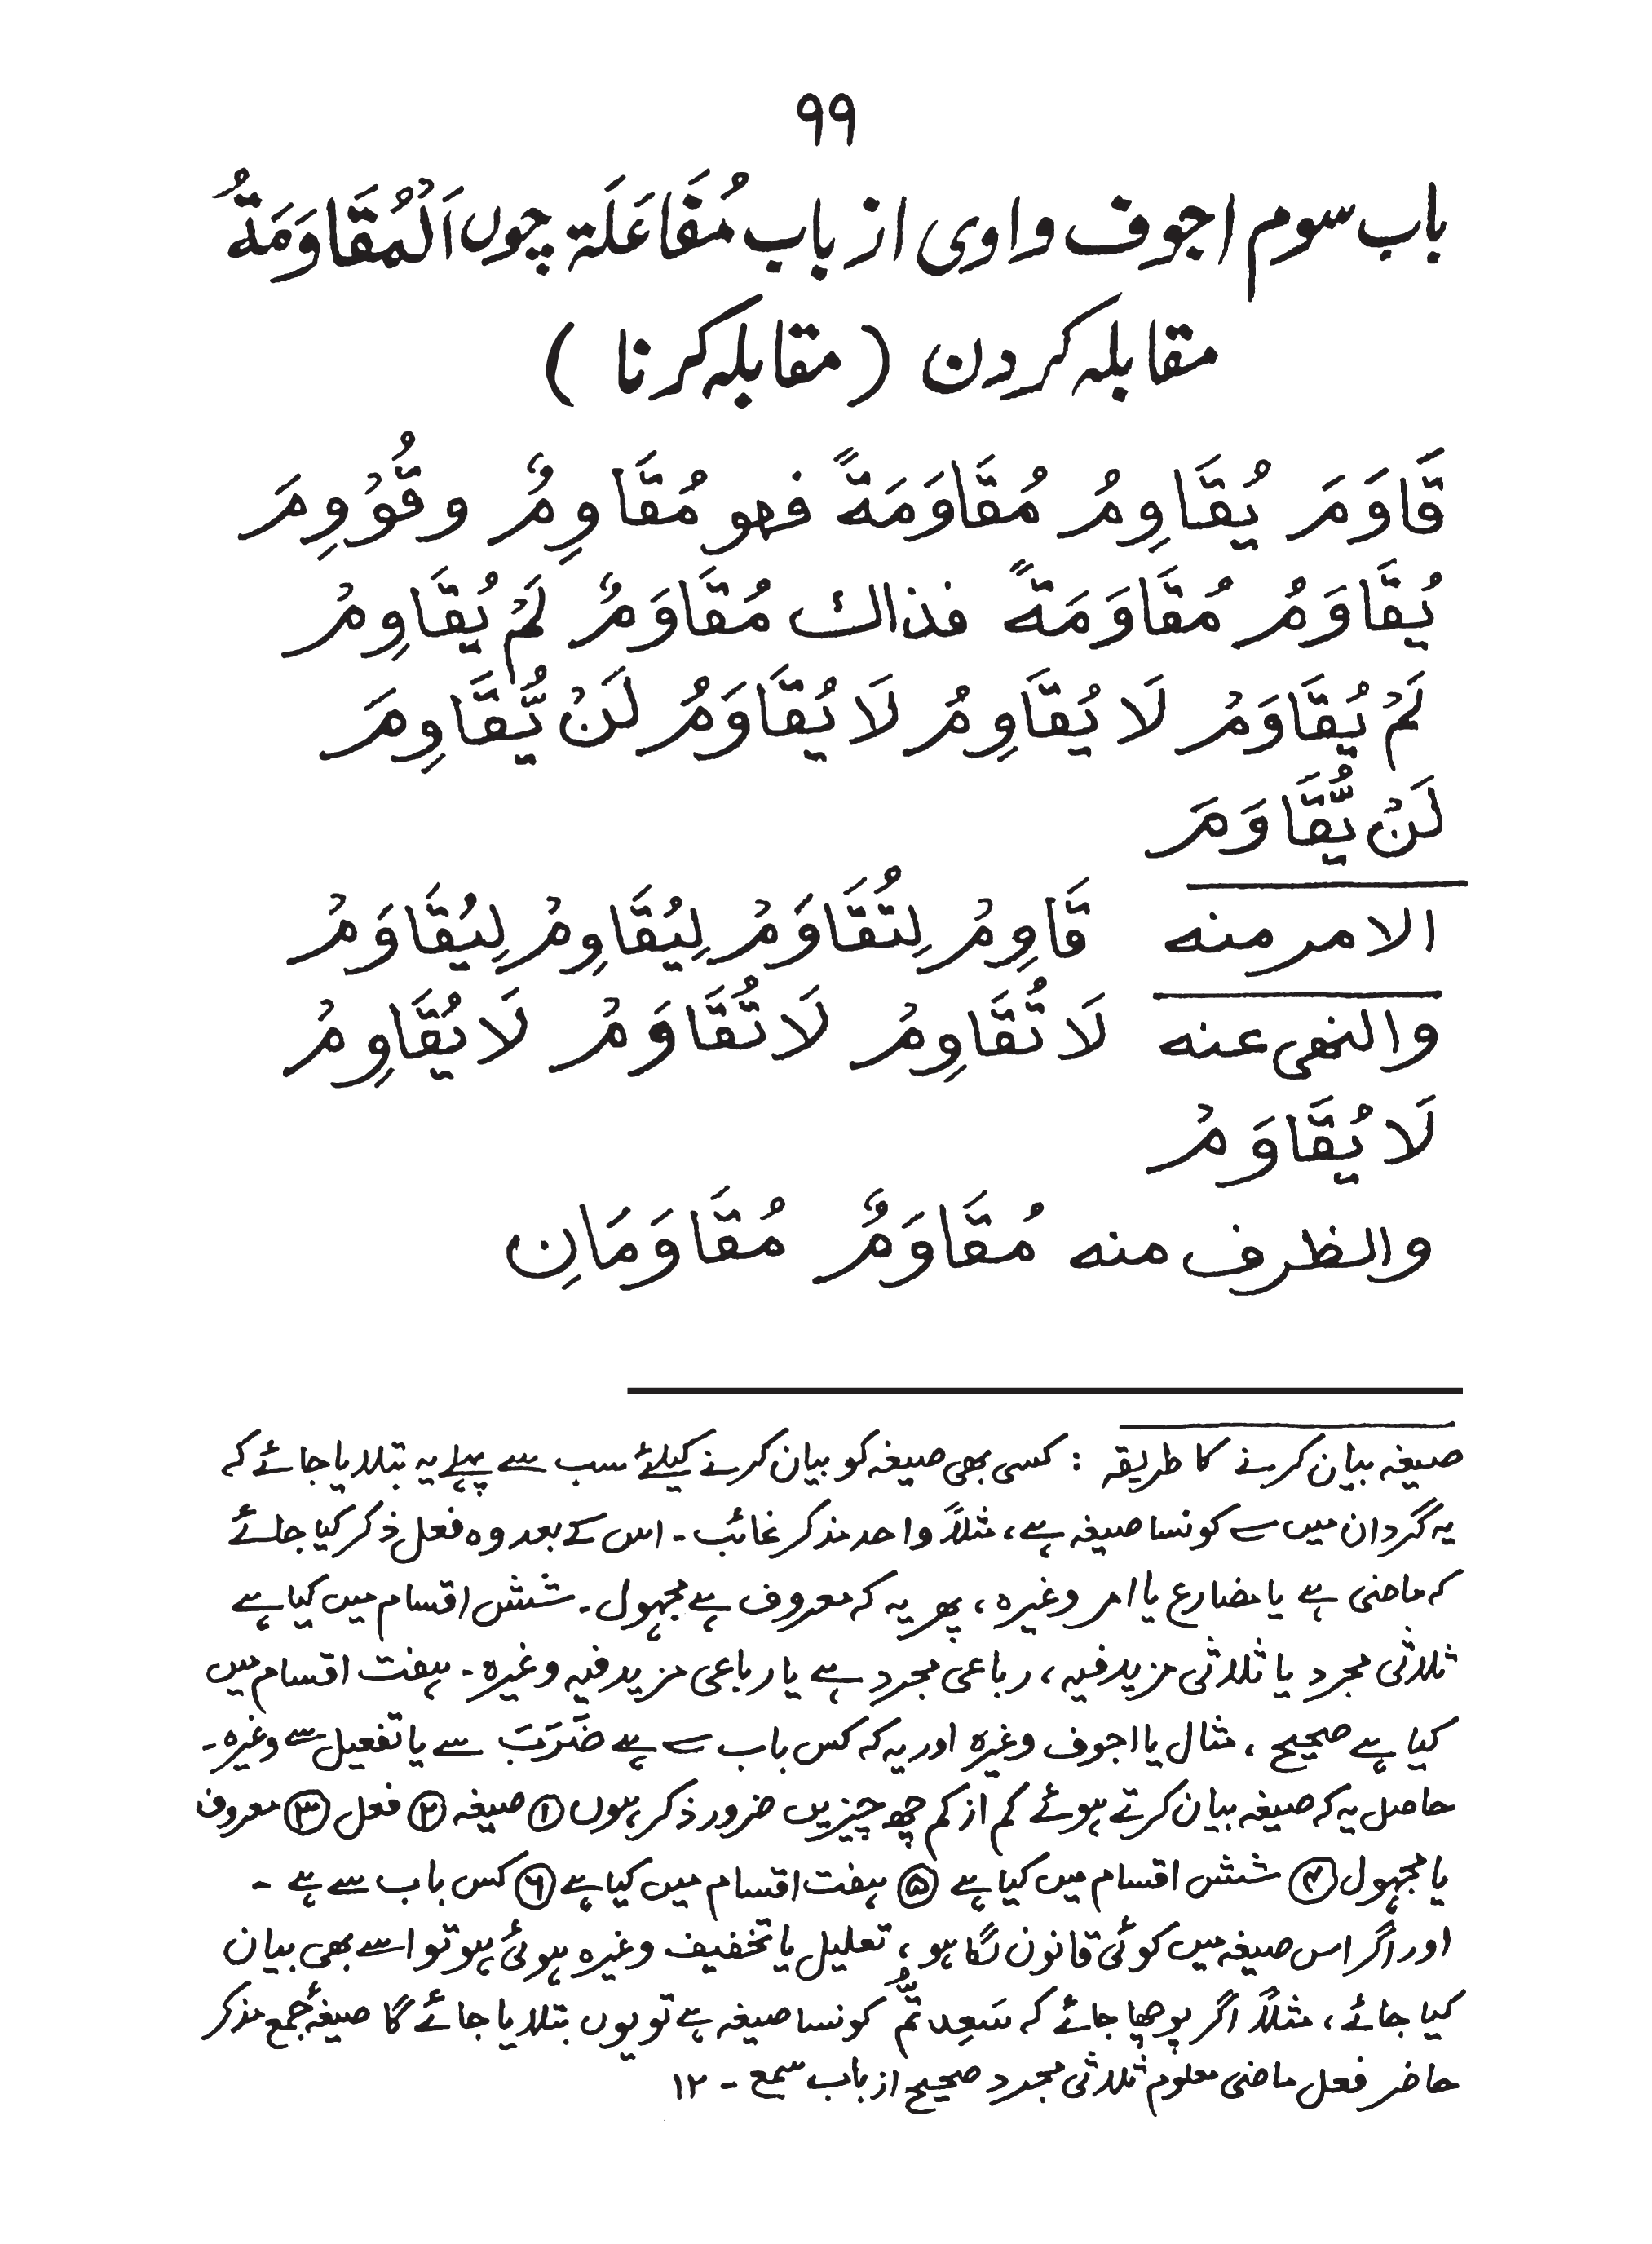 ۹۹
باب سوم اجوف واوی از باب مُفَاعَلَة چوں اَلْمُقَاوَمَةُ
مقابلہ کردن ( مقابلہ کرنا )
قَاوَمَ يُقَاوِمُ مُقَاوَمَةً فهو مُقَاوِمٌ و قُوْوِمَ
يُقَاوَمُ مُقَاوَمَةً فذاك مُقَاوَمٌ لَمْ يُقَاوِمْ
لَمْ يُقَاوَمْ لَا يُقَاوِمُ لَا يُقَاوَمُ لَنْ يُّقَاوِمَ
لَنْ يُّقَاوَمَ
الامر منه قَاوِمْ لِتُقَاوَمْ لِيُقَاوِمْ لِيُقَاوَمْ
والنهى عنه لَا تُقَاوِمْ لَا تُقَاوَمْ لَا يُقَاوِمْ
لَا يُقَاوَمْ
والظرف منه مُقَاوَمٌ مُقَاوَمَانِ
صیغہ بیان کرنے کا طریقہ : کسی بھی صیغہ کو بیان کرنے کیلئے سب سے پہلے یہ بتلادیا جائے کہ
یہ گردان میں سے کونسا صیغہ ہے، مثلاً واحد مذکر غائب ۔ اس کے بعد وہ فعل ذکر کیا جائے
کہ ماضی ہے یا مضارع یا امر وغیرہ، پھر یہ کہ معروف ہے مجہول ۔ شش اقسام میں کیا ہے
ثلاثی مجرد یا ثلاثی مزید فیہ، رباعی مجرد ہے یا رباعی مزید فیہ وغیرہ ۔ ہفت اقسام میں
کیا ہے صحیح ، مثال یا اجوف وغیرہ اور یہ کہ کس باب سے ہے ضَرَبَ سے یا تفعیل سے وغیرہ ۔
حاصل یہ کہ صیغہ بیان کرتے ہوئے کم از کم چھ چیزیں ضرور ذکر ہوں ① صیغہ ② فعل ③ معروف
یا مجہول ④ شش اقسام میں کیا ہے ⑤ ہفت اقسام میں کیا ہے ⑥ کس باب سے ہے ۔
اور اگر اس صیغہ میں کوئی قانون لگا ہو ، تعلیل یا تخفیف وغیرہ ہوئی ہو تو اسے بھی بیان
کیا جائے ، مثلاً اگر پوچھا جائے کہ سَعِدتُّم کونسا صیغہ ہے تو یوں بتلایا جائے گا صیغۂ جمع مذکر
حاضر فعل ماضی معلوم ثلاثی مجرد صحیح از باب سمع ۔ ۱۲